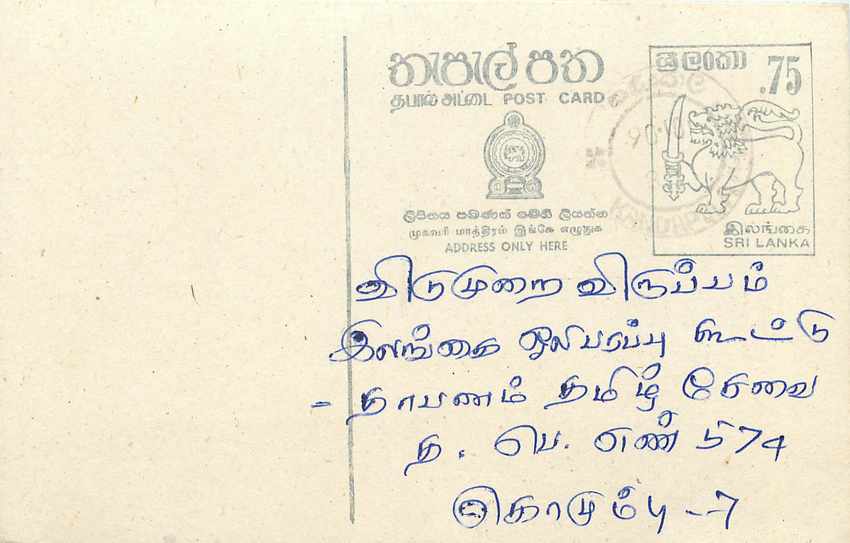 තැපැල් පත
தபால் அட்டை POST CARD
ලිපිනය පමණක් මෙහි ලියන්න
முகவரி மாத்திரம் இங்கே எழுதுக
ADDRESS ONLY HERE
ශ්‍රී ලංකා .75
இலங்கை
SRI LANKA
விடுமுறை விருப்பம்
இலங்கை ஒலிபரப்பு கூட்டு
- தாபனம் தமிழ் சேவை
த. பெ. எண் 574
கொழும்பு -7